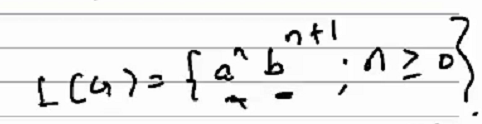 L(G) = { aⁿ bⁿ⁺¹ ; n ≥ 0 }.